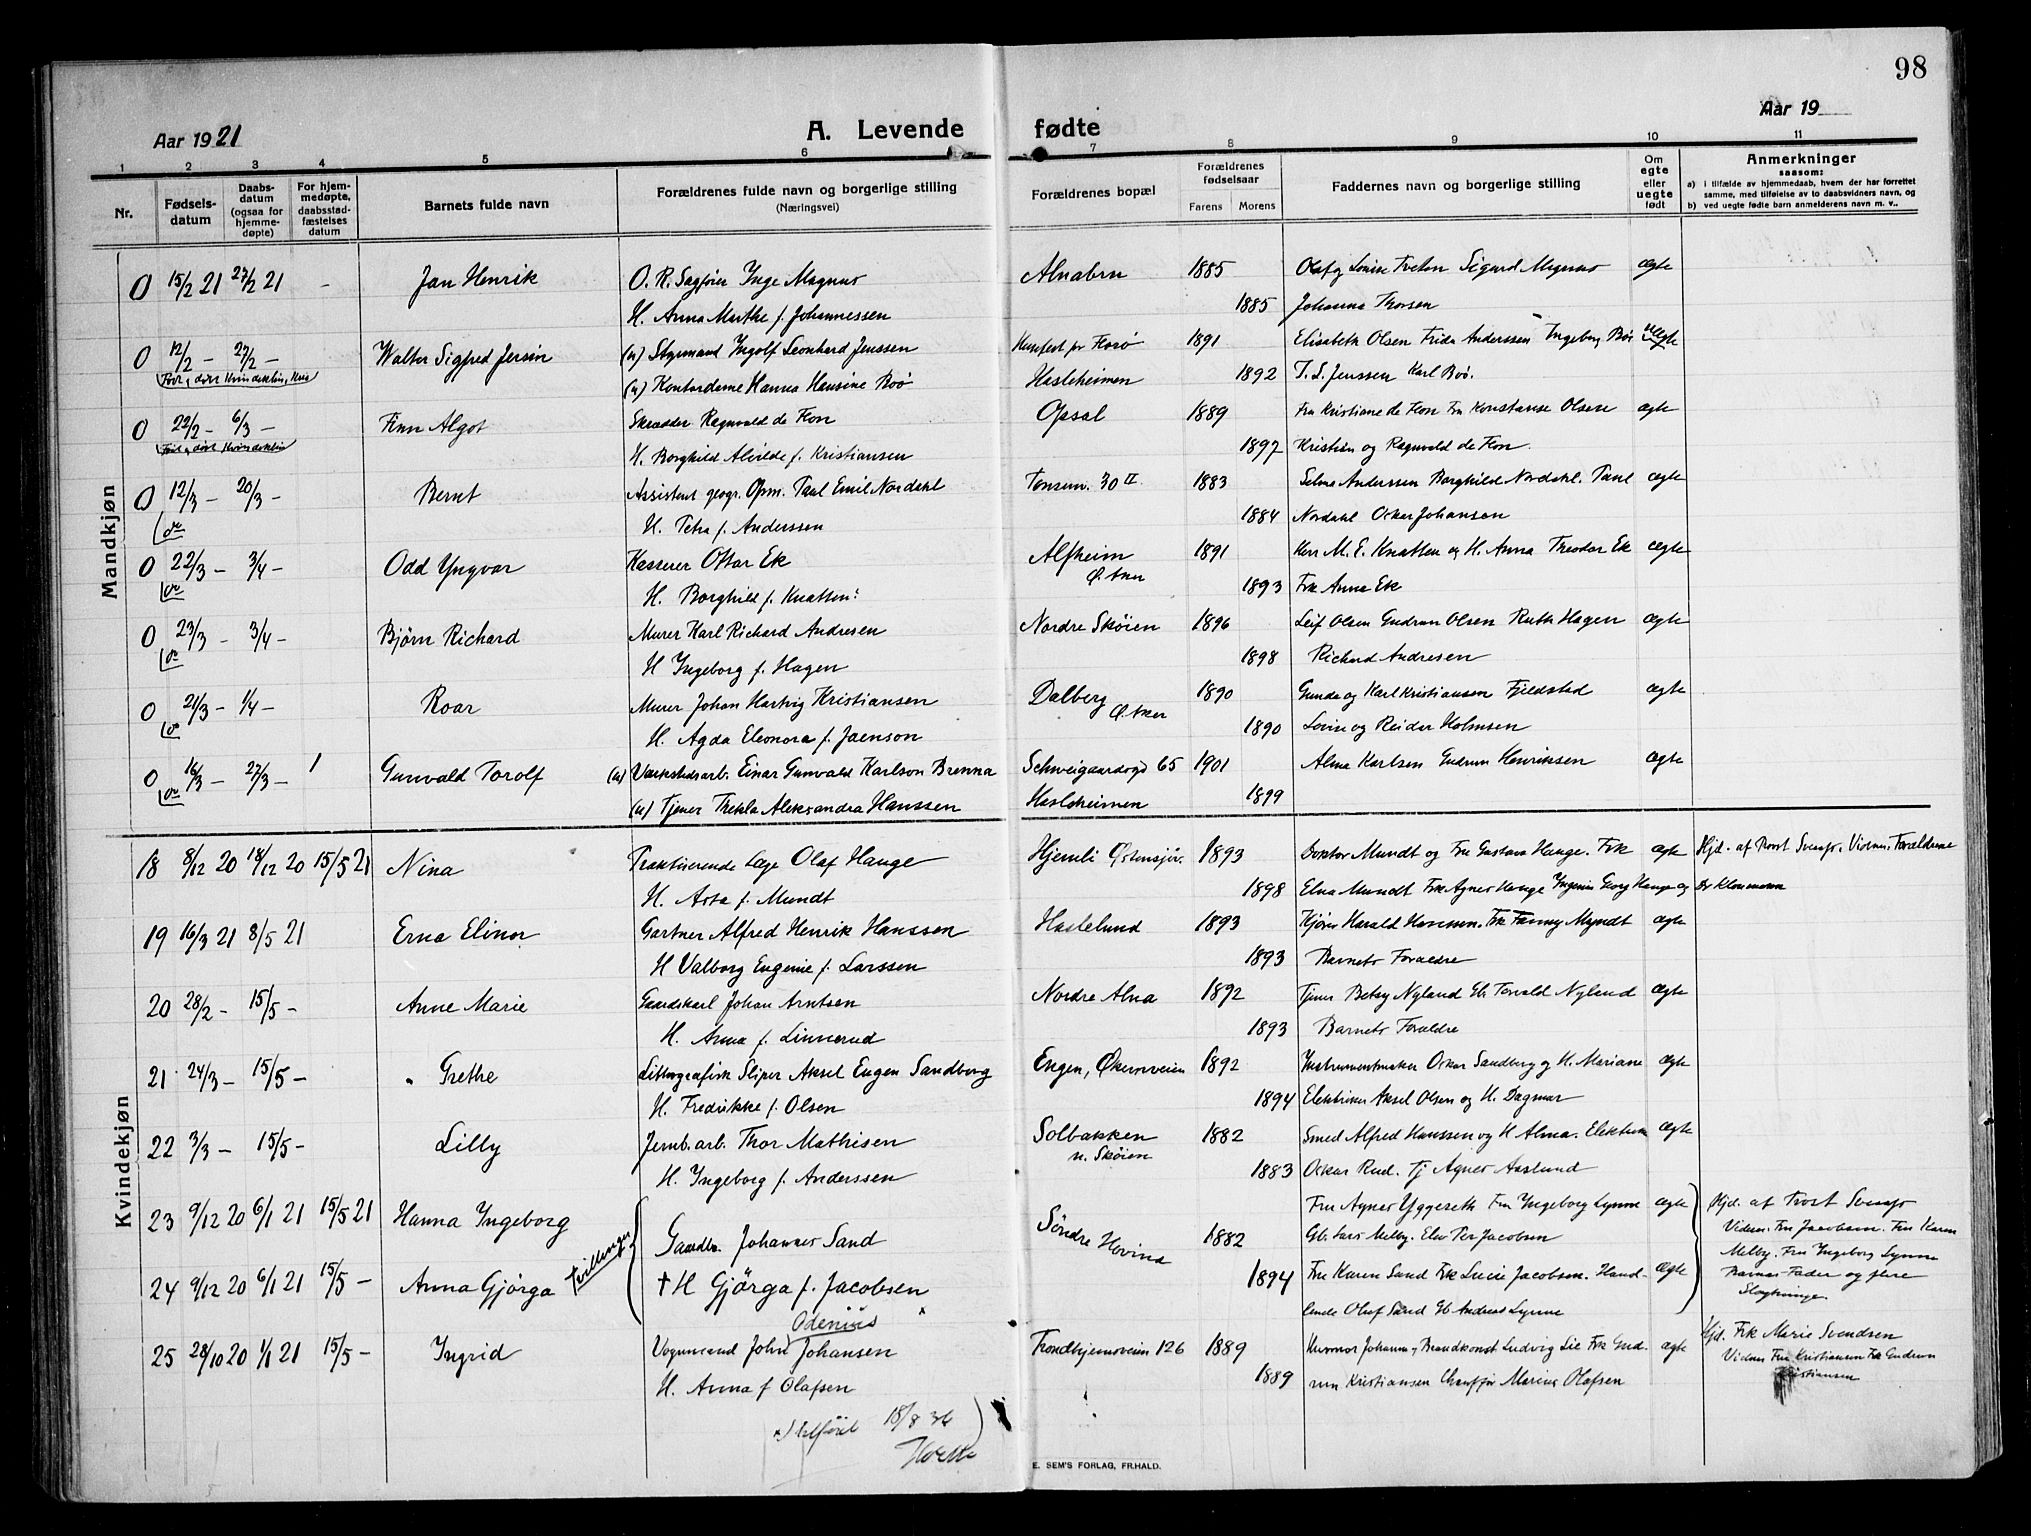 98
Aar 1921
A. Levende fødte
Aar 19
1 2 3 4 5 6 7 8 9 10 11
Nr.
Fødsels-
datum
Daabs-
datum
(ogsaa for
hjemme-
døpte)
For hjem-
medøpte,
daabsstad-
fæstelses
datum
Barnets fulde navn
Forældrenes fulde navn og borgerlige stilling
(Næringsvei)
Forældrenes bopæl
Forældrenes
fødselsaar
Farens Morens
Faddernes navn og borgerlige stilling
Om
egte
eller
uegte
født
Anmerkninger
saasom:
a) i tilfælde av hjemmedaab, hvem der har forrettet
samme, med tilføielse av to daabsvidners navn, og
b) ved uegte fødte barn anmelderens navn m. v..
Mandkjøn
0 15/2 21 27/2 21 - Jan Henrik O. R. Sagfører Inge Magnus Alnabru 1885 Olaf og Louise Tveten Sigurd Magnus ægte
H. Anna Marthe f. Johannessen 1885 Johanna Thorsen
0 12/2 - 27/2 - Walter Sigfred Jersin (u) Styrmand Ingolf Leonhard Jenssen Florø 1891 Elisabeth Olsen Frida Anderssen Ingeborg Bøe uegte
(u) Kontordame Hanna Hansine Boö Hasleheimen 1892 T. L. Jenssen Karl Boö.
0 22/2 - 6/3 - Finn Algot Skrædder Ragnvald de Flon Opsal 1889 Fru Kristiane de Flon Fru Konstanse Olsen ægte
H. Borghild Alvilde f. Kristiansen 1897 Kristian og Ragnvald de Flon.
0 12/3 - 20/3 - Bernt Assistent geogr. Opm. Paul Emil Nordahl Tonsenv. 30 II 1883 Selma Anderssen Borghild Nordahl. Paul ægte
H. Petra f. Anderssen 1884 Nordahl Oskar Johansen
0 22/3 - 3/4 - Odd Yngvar Kasserer Ottar Ek Alfheim 1891 Herr M. E. Knatten og H. Anna Theodor Ek ægte
H. Borghild f. Knatten. Ø. Aker 1893 Frk Anna Ek
0 23/3 - 3/4 - Bjørn Richard Murer Karl Richard Andresen Nordre Skøien 1896 Leif Olsen Gudrun Olsen Ruth Hagen ægte
H Ingeborg f. Hagen 1898 Richard Andresen
0 21/3 - 1/4 - Roar Murer Johan Hartvig Kristiansen Dalberg 1890 Gunda og Karl Kristiansen Fjeldstad ægte
H. Agda Eleonora f. Jaenson Ø. Aker 1890 Lovise og Reidar Holmsen
0 16/3 - 27/3 - 1 Gunvald Torolf (u) Værkstedsarb. Einar Gunvald Karlson Brenna Schweigaardsgd 65 1901 Alma Karlsen Gudrun Henriksen ægte
(u) Tjener Thekla Aleksandra Hanssen Hasleheimen 1899
Kvindekjøn
18 8/12 20 18/12 20 15/5 21 Nina Praktiserende Læge Olaf Hauge Hjemli Østensjøv. 1893 Doktor Mundt og Fru Gustava Hauge. Frk ægte Hjd. af Prost Svensør. Vidner. Forældrene
H. Asta f. Mundt 1898 Elna Mundt Frk Agnes Hauge Ingeniør Georg Hauge og Dr Klaumann
19 16/3 21 8/5 21 Erna Elinor Gartner Alfred Henrik Hanssen Haslelund 1893 Kjører Harald Hanssen. Frk Fanny Myndt ægte
H Valborg Eugenie f. Larssen 1893 Barnets Forældre
20 28/2 - 15/5 - Anne Marie Gaardskarl Johan Arntsen Nordre Alna 1892 Tjener Betsy Nyland Gb. Torvald Nyland ægte
H. Anna f. Linnerud 1893 Barnets Forældre
21 24/3 - 15/5 - Grethe Litografisk Sliper Aksel Eugen Sandberg Engen, Økernveien 1892 Instrumentmaker Oskar Sandberg og H. Mariane ægte
H. Fredrikke f. Olsen 1894 Elektriker Aksel Olsen og H. Dagmar
22 3/3 - 15/5 - Lilly Jernb. arb. Thor Mathisen Solbakken 1882 Smed Alfred Hanssen og H Alma. Elektriker ægte
H. Ingeborg f. Anderssen n. Skøien 1883 Oskar Rud. Tj Agnes Aaslund
23 9/12 20 6/1 21 15/5 21 Hanna Ingeborg Gaardbr. Johannes Sand Søndre Hovind 1882 Fru Agnes Yggeseth Fru Ingeborg Lynne ægte Hjd. af Prost Svensør
Gb. Lars Melby. Elev Per Jacobsen Vidner. Fru Jacobsen. Fru Karen
tvillinger
24 9/12 20 6/1 21 15/5 - Anna Gjørga † H Gjørga f. Jacobsen 1894 Fru Karen Sand Frk Lucie Jacobsen. Hand- ægte Melby. Fru Ingeborg Lynne
lende Oluf Sand Gb Andreas Lynne Barnas Fader og flere
Slegtninge.
Odenius x
25 28/10 20 1/1 21 15/5 - Ingrid Vognmand John Johansen Trondhjemsveien 126 1889 Johanna, Brandkonst Ludvig Lie Frk Gud- ægte Hjd. Frk Marie Svendsen
H. Anna f Olafsen 1889 run Kristiansen Chauffør Marius Olafsen Vidner Fru Kristiansen Frk Gudrun
Kristiansen
x) tilføiet 18/8 36
E. SEM'S FORLAG, FR.HALD.